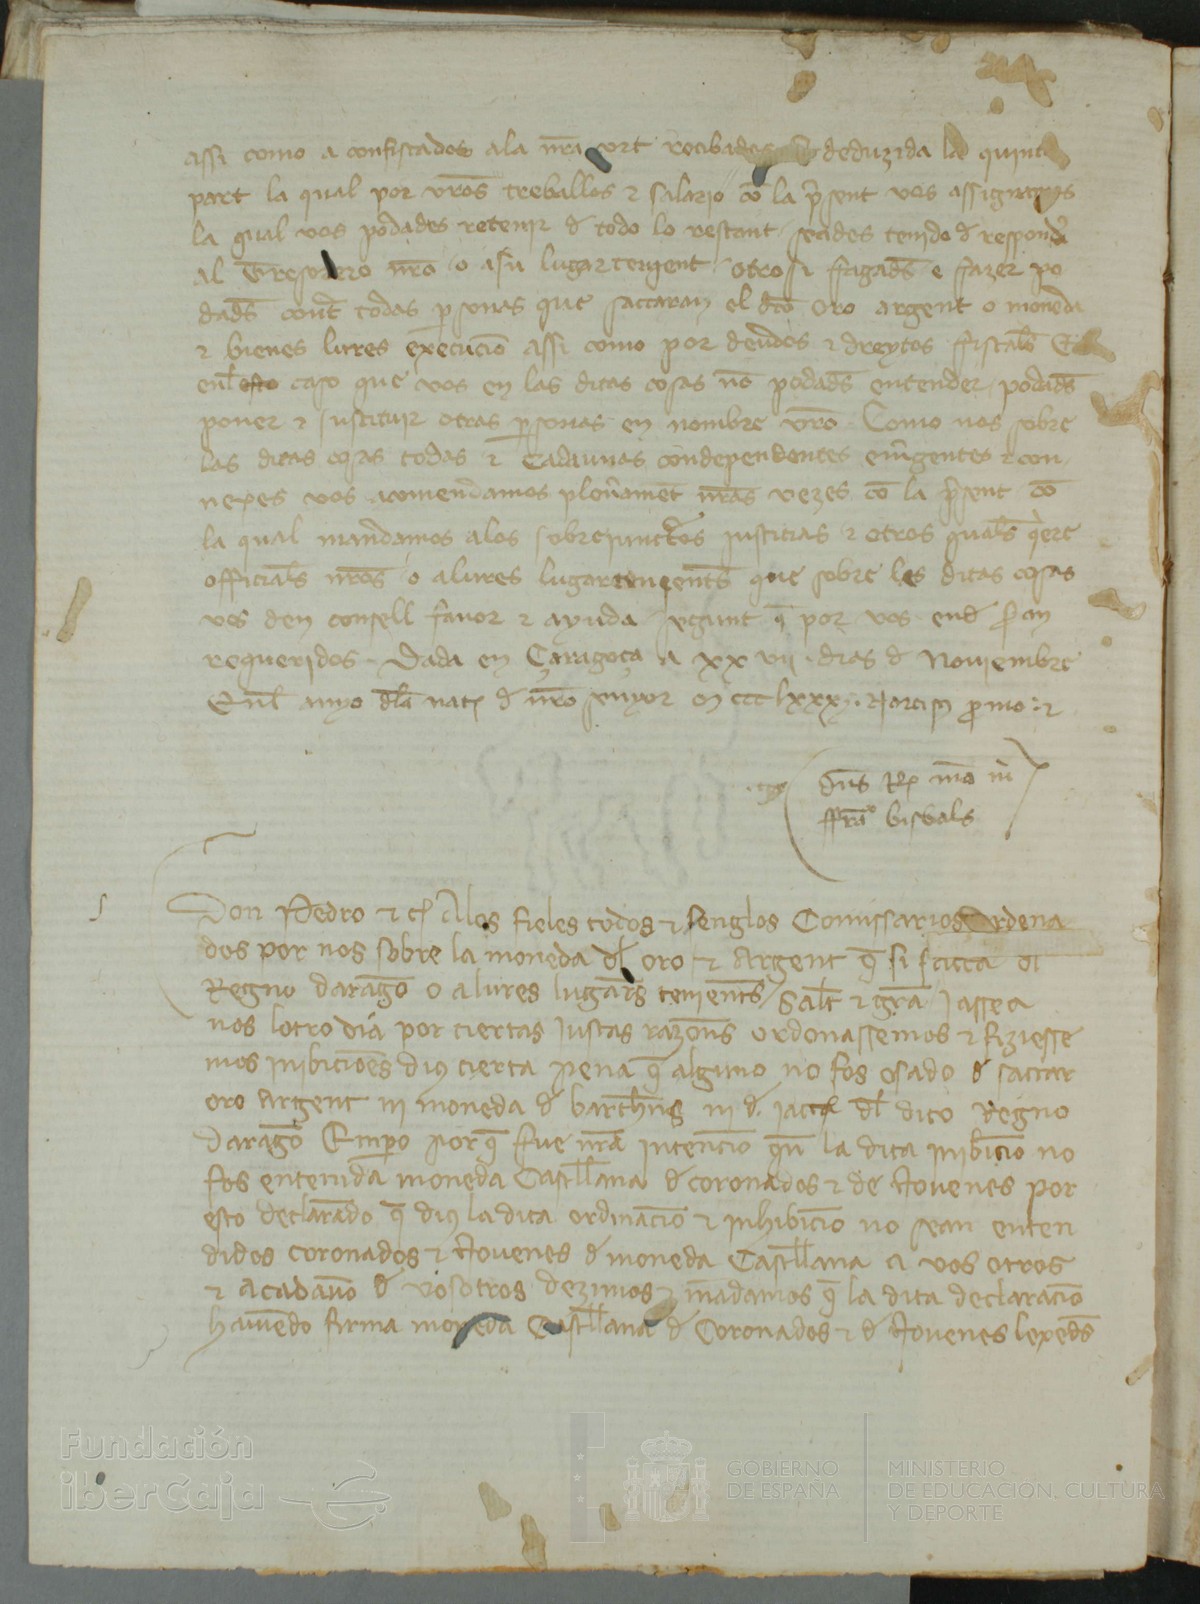 assi como a confiscados ala nra cort recibades deduzida la quint
part la qual por vros treballos & salario co la psent vos assignamos
la qual vos podades retenir d todo lo restant seades tenido d responder
al Tresorero nro o a su lugartenient otrosi fagads e fazer po
dads cont todas psonas que saccaran el dco oro argent o moneda
& bienes lures execucio assi como por deudos & dreytos fiscals E
enl caso que vos en las ditas cosas no podads entender podads
poner & sustituir otras psonas en nombre vro Como nos sobre
las ditas cosas todas & cadaunas condependentes emgentes & con
nexes vos acomendamos plenament nras vezes co la psent co
la qual mandamos alos sobrejunctos justicias & otros quals qere
officials nros o a lures lugartenients que sobre les ditas cosas
vos den consell favor & ayuda segunt q por vos end sran
requeridos Dada en Çaragoça a xx vii dias d Noviembre
Enl anyo dla nat d nro senyor m ccc lxxxj
dns Rex mo m
ffra bisbals
Don Pedro & c Alos fieles todos & senglos Comissarios ordena
dos por nos sobre la moneda dl oro & Argent q si sacca dl
Regno darago o a lures lugars tenients Salt & gra Jassea
nos lotro dia por ciertas justas razons ordenassemos & fiziesse
mos inibiciones dius cierta pena q alguno no fos osado d saccar
oro Argent ni moneda d barchns ni d jacca dl dito Regno
darago Empo porq fue nra intencio qn la dita inibicio no
fos entenida moneda Castllana d coronados & de Novenes por
esto declarado q dius la dita ordinacio & inhibicio no sean enten
didos coronados & Novenes d moneda Castllana a vos otros
& acadauno d vosotros dezimos & mandamos q la dita declaracio
havendo firma moneda Castllana d Coronados & d Novenes lexeds
Fundación
iberCaja
GOBIERNO
DE ESPAÑA
MINISTERIO
DE EDUCACIÓN, CULTURA
Y DEPORTE